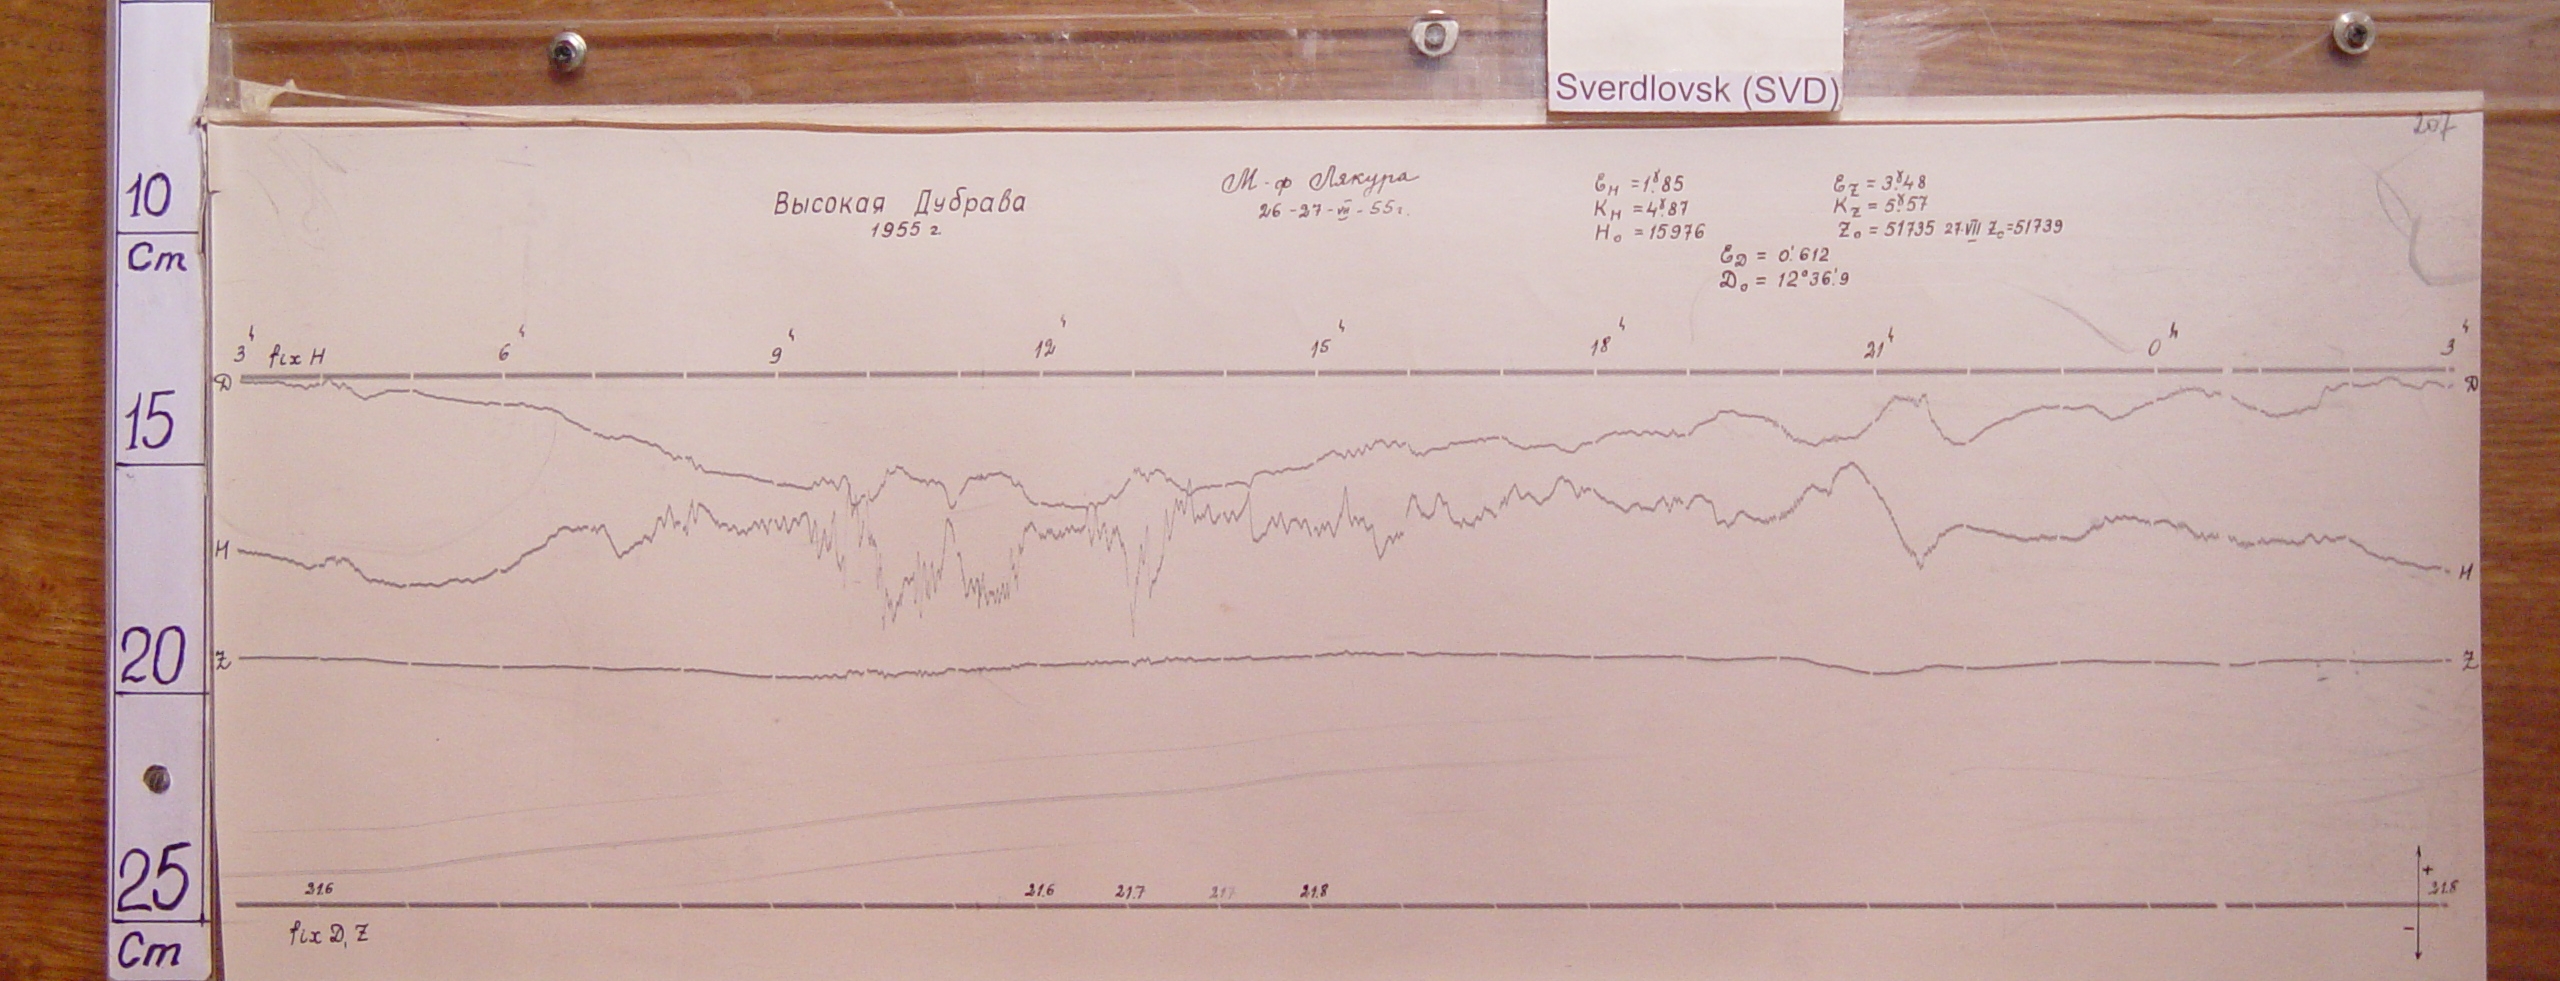 Sverdlovsk (SVD)
207
10
Cm
15
20
25
Cm
Высокая Дубрава
1955 г
М-ф Лякура
26-27-VII-55г.
Ɛ_H = 1ˠ.85
K_H = 4ˠ.87
H_o = 15976
Ɛ_Z = 3ˠ.48
K_Z = 5ˠ.57
Z_o = 51735 27.VII Z_o=51739
Ɛ_D = 0'.612
D_o = 12°36'.9
3ʰ fix H 6ʰ 9ʰ 12ʰ 15ʰ 18ʰ 21ʰ 0ʰ 3ʰ
D D
H H
Z Z
21.6 21.6 21.7 21.7 21.8 21.8
+
−
fix D, Z